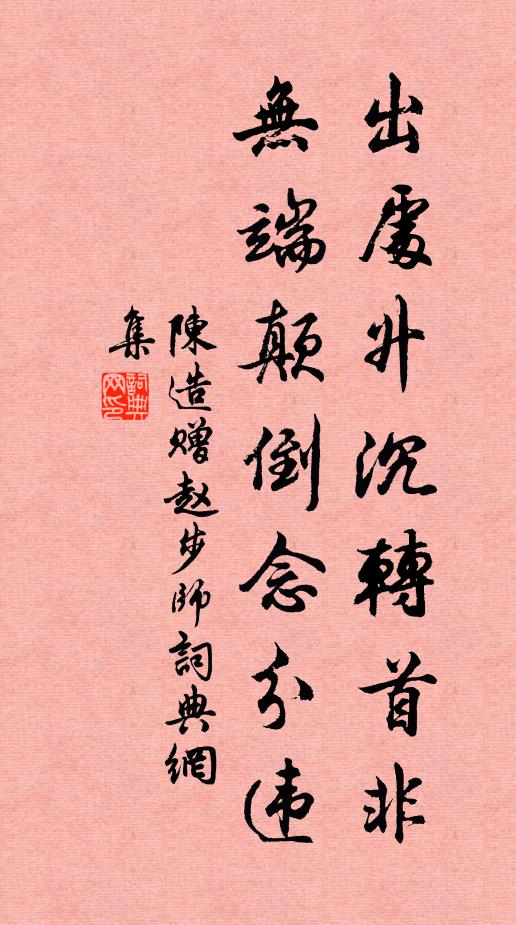 出處升沉轉首非
無端顛倒念分违
陳造赠赵步師詞典網
集
詞典网印